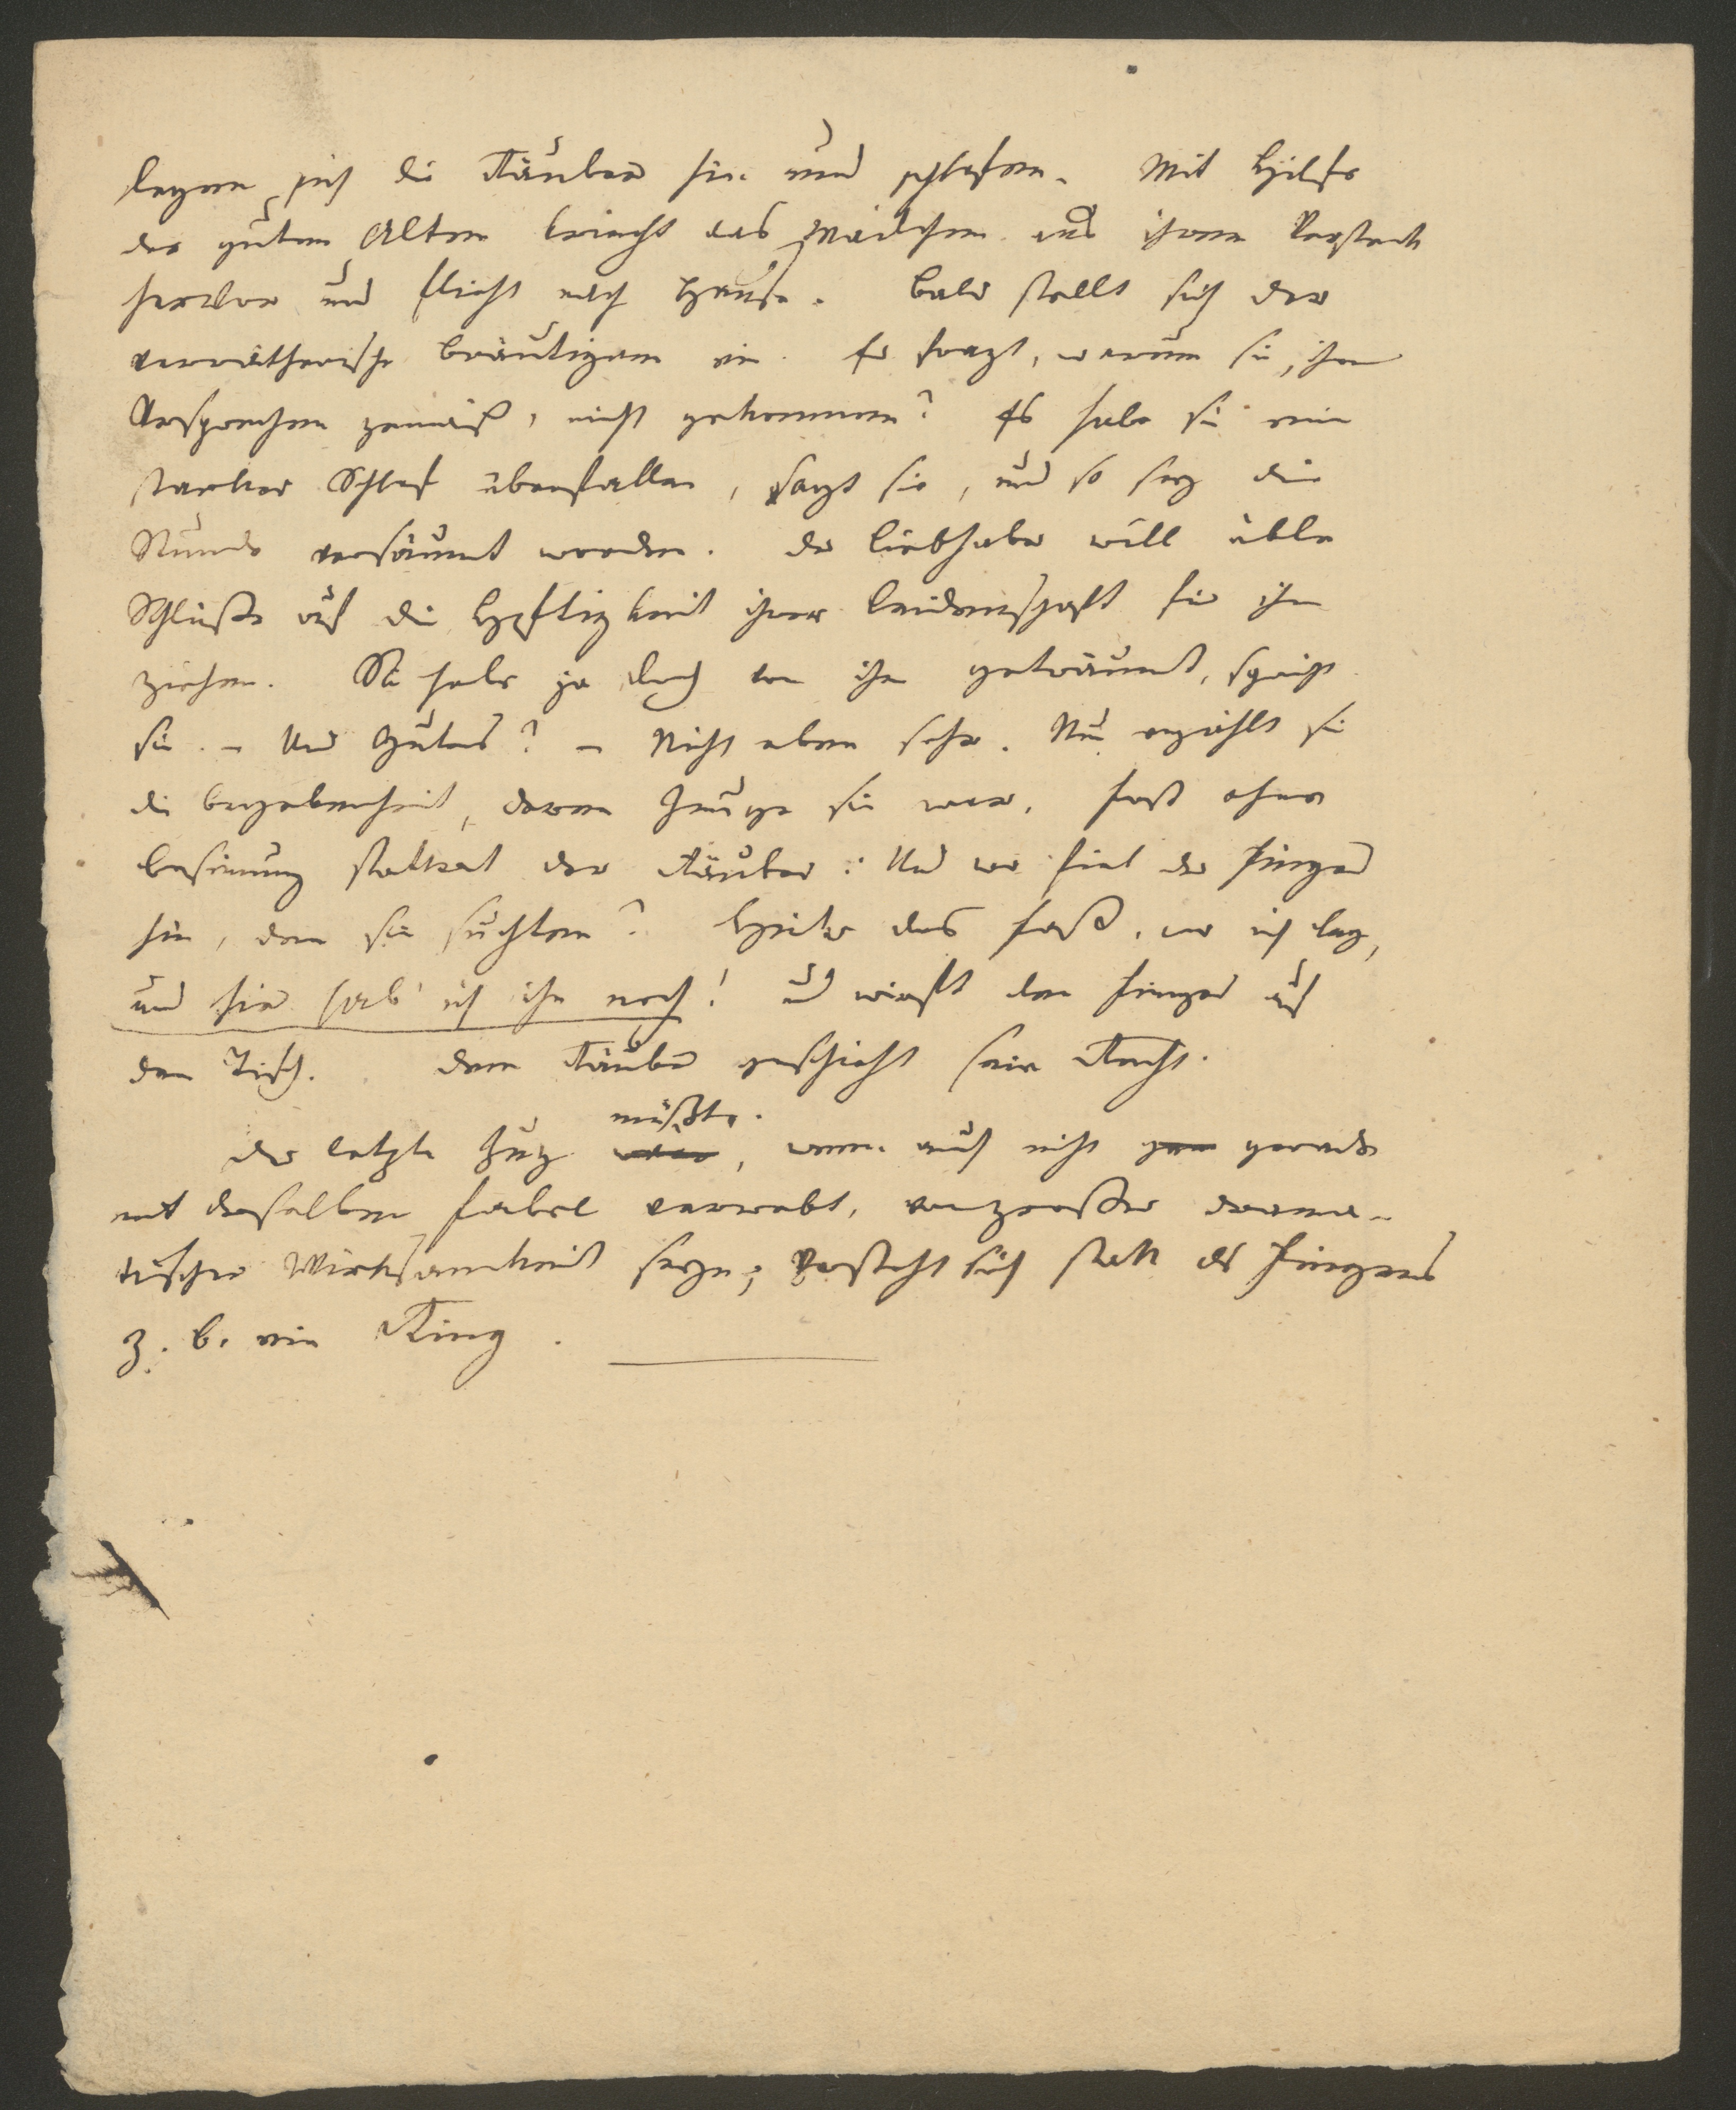 legen sich die Räuber hin und schlafen. Mit Hülfe
der guten Alten kriecht das Mädchen aus ihrem Versteck
hervor und flieht nach Hause. Bald stellt sich der
verrätherische Bräutigam ein. Er fragt, warum sie, ihrem
Versprechen gemäß, nicht gekommen? Es habe sie ein
starker Schlaf überfallen, sagt sie, und so sey die
Stunde versäumt worden. Der Liebhaber will üble
Schlüße auf die Heftigkeit ihrer Leidenschaft für ihn
ziehen. Sie habe ja doch von ihm geträumt, spricht
sie. – Und Gutes? – Nicht eben sehr. Nun erzählt sie
die Begebenheit, deren Zeuge sie war. Fast ohne
Besinnung stottert der Räuber: Und wo fiel der Finger
hin, den sie suchten? Hinter das Faß, wo ich lag,
und hier hab' ich ihn noch! und wirft den Finger auf
den Tisch. Dem Räuber geschieht sein Recht.
müßte
Der letzte Zug wäre, wenn auch nicht gerade
mit derselben Fabel verwebt, von großer drama-
tischer Wirksamkeit seyn; versteht sich statt des Fingers
z. B. ein Ring.